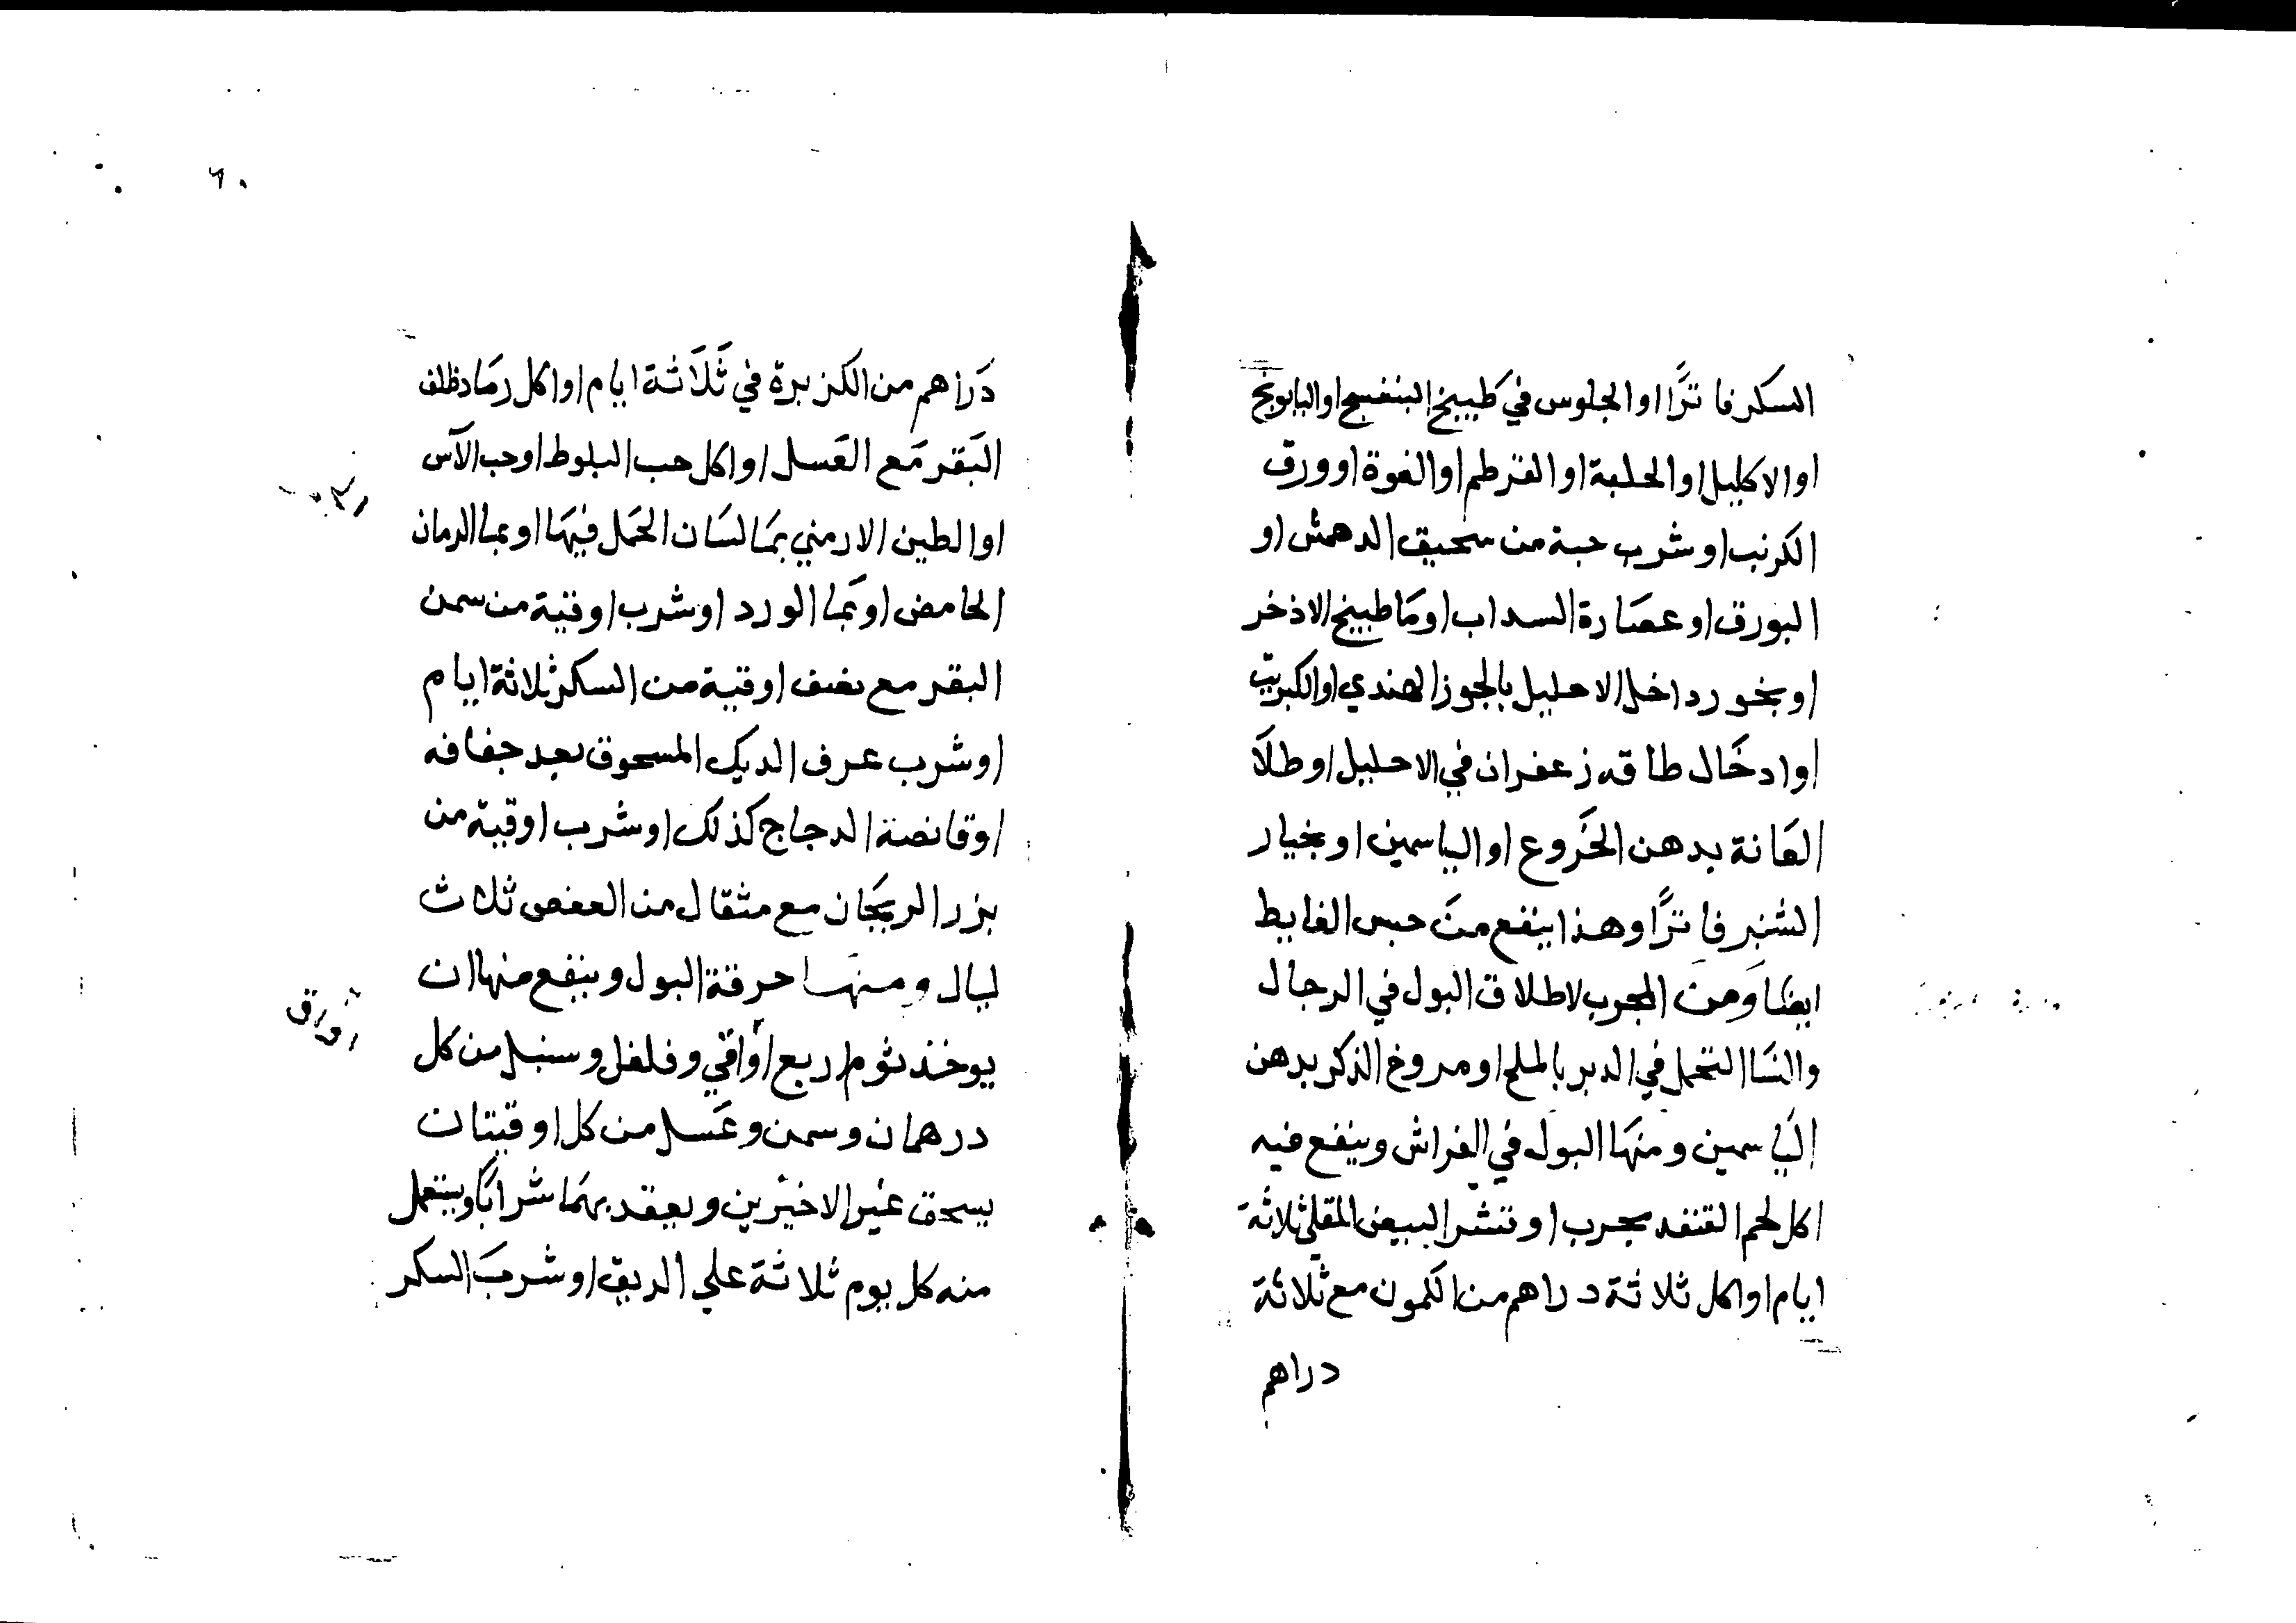 السكر فاترًا او الجلوس في طبيخ البنفسج او البابونج
او الاكليل او الحلبة او القرطم او الفوة او ورق
الكرنب او شرب حبة من سحيق الدهمش او
البورق او عصَارة السداب او مَا طبيخ الاذخر
او بخور داخل الاحليل بالجوز الهندي او الكبريت
او ادخَال طاقه زعفران في الاحليل او طلَا
العَانة بدهن الخَروع او الياسمين او بخيار
الشنبر فاترًا وهذا ينفع منَ حبس الغايط
ايضَا وَمن المجرب لاطلاق البول في الرجال
والنسَا التحمل في الدبر بالملح او مروخ الذكر بدهن
اليَاسمين ومنهَا البول في الفراش وينفع فيه
اكل لحم القنفد مجرب او قشر البيض المقلي ثلاثَة
ايام او اكل ثلاثة دراهم من الكمون مع ثلاثة
دراهم
٦٠
دَرَاهم من الكزبرة في ثَلَاثة ايام او اكل رمَاد ظلف
البَقر مَع العَسل او اكل حب البلوط او حب الآس
او الطين الارمني بمَا لسَان الحَمل فيهَا او بما الرمان
الحامض او بمَا الورد او شرب اوقية من سمن
البقر مع نصف اوقية من السكر ثلاثة ايام
او شرب عرف الديك المسحوق بعد جفافه
او قانصة الدجاج كذلك او شرب اوقية من
بزر الريحَان مع مثقال من العفص ثلاث
ليال ومنهَا حرقة البول وينفع منها ان
يوخذ ثوم اربع أوَاقي وفلفل وسنبل من كل
درهمان وسمن وعَسل من كل اوقيتان
يسحق غيَر الاخيَرين ويعقد بهمَا شرابَا ويستعمل
منه كل يوم ثلاثة علي الريق او شربَ السكر
اوراق